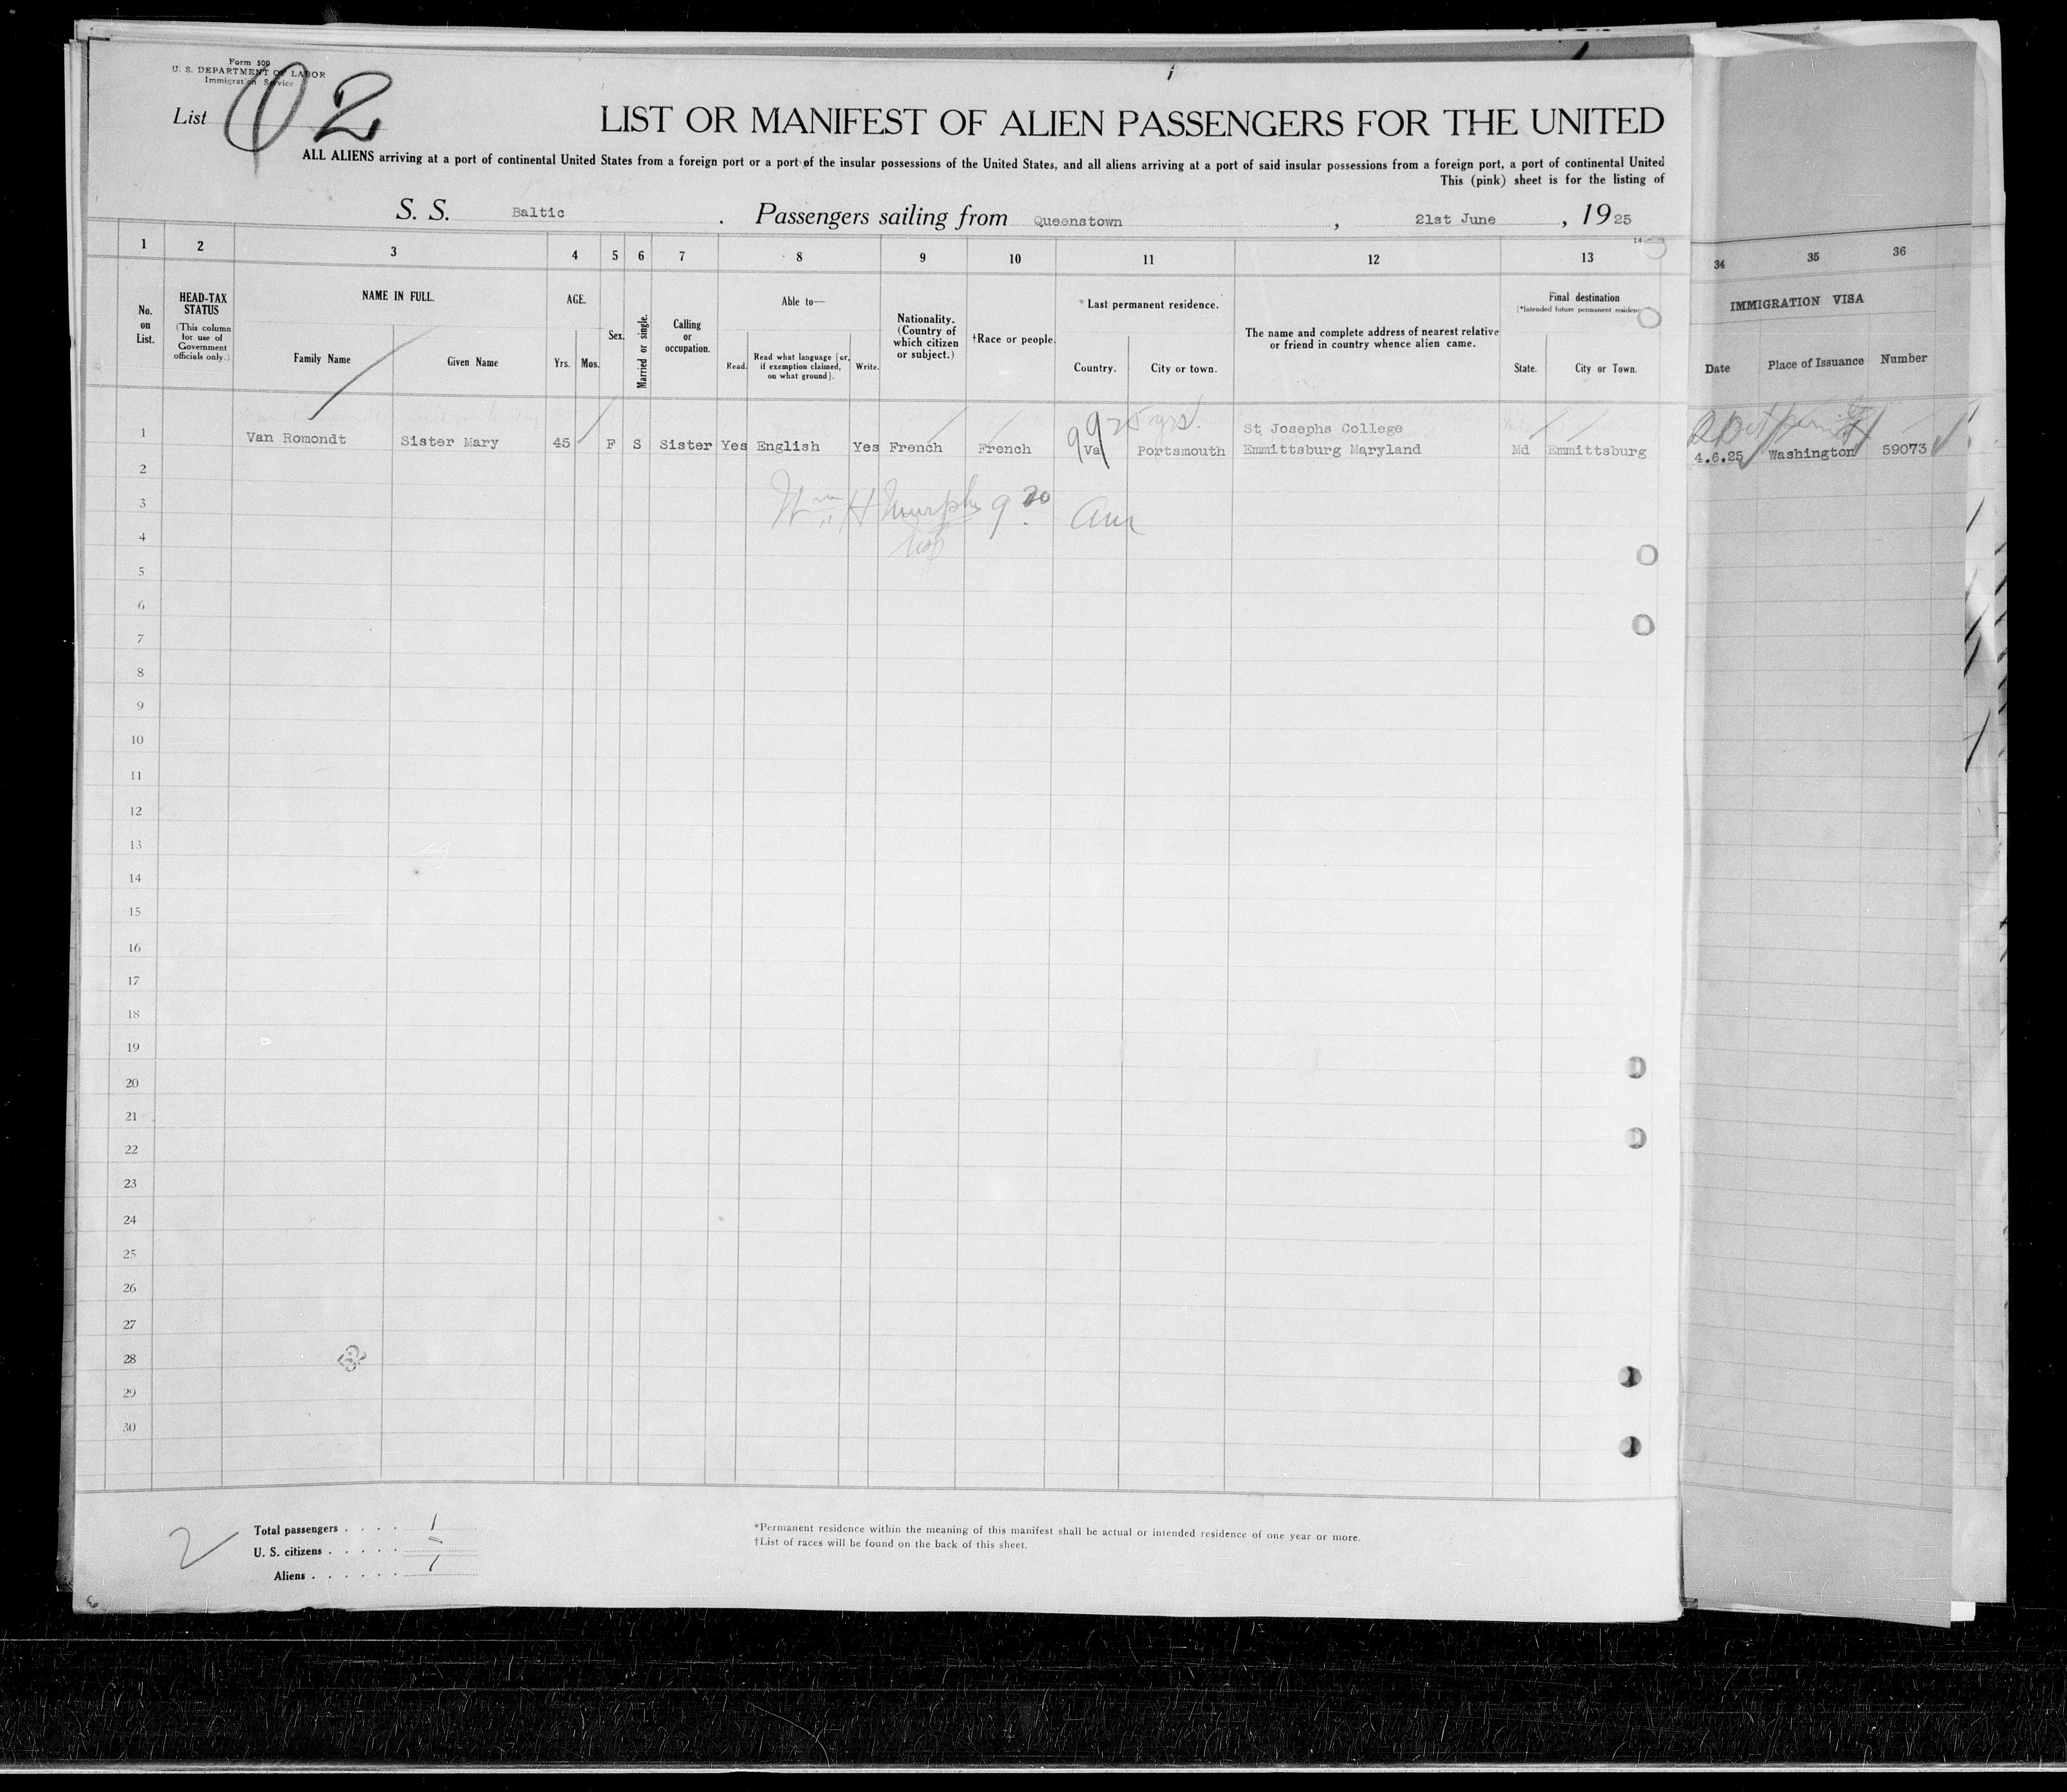 Form 500
U. S. DEPARTMENT OF LABOR
Immigration Service
List 2
LIST OR MANIFEST OF ALIEN PASSENGERS FOR THE UNITED
ALL ALIENS arriving at a port of continental United States from a foreign port or a port of the insular possessions of the United States, and all aliens arriving at a port of said insular possessions from a foreign port, a port of continental United
This (pink) sheet is for the listing of
S. S. Baltic . Passengers sailing from Queenstown , 21st June , 1925
1 2 3 4 5 6 7 8 9 10 11 12 13 34 35 36
No. on List.
HEAD-TAX STATUS
(This column for use of Government officials only.)
NAME IN FULL.
Family Name
Given Name
AGE.
Yrs. Mos.
Sex.
Married or single.
Calling or occupation.
Able to—
Read.
Read what language [or, if exemption claimed, on what ground].
Write.
Nationality. (Country of which citizen or subject.)
†Race or people.
*Last permanent residence.
Country. City or town.
The name and complete address of nearest relative or friend in country whence alien came.
Final destination
(*Intended future permanent residence
State. City or Town.
IMMIGRATION VISA
Date Place of Issuance Number
25 yrs.
St. Josephs College
1 Van Romondt Sister Mary 45 F S Sister Yes English Yes French French Va Portsmouth Emmittsburg Maryland Md Emmittsburg 4.6.25 Washington 59073
2
3 Wm H Murphy 9 20 am
4
5
6
7
8
9
10
11
12
13
14
15
16
17
18
19
20
21
22
23
24
25
26
27
28
29
30
2
Total passengers . . . . 1
U. S. citizens . . . . .
Aliens . . . . . . 1
*Permanent residence within the meaning of this manifest shall be actual or intended residence of one year or more.
†List of races will be found on the back of this sheet.